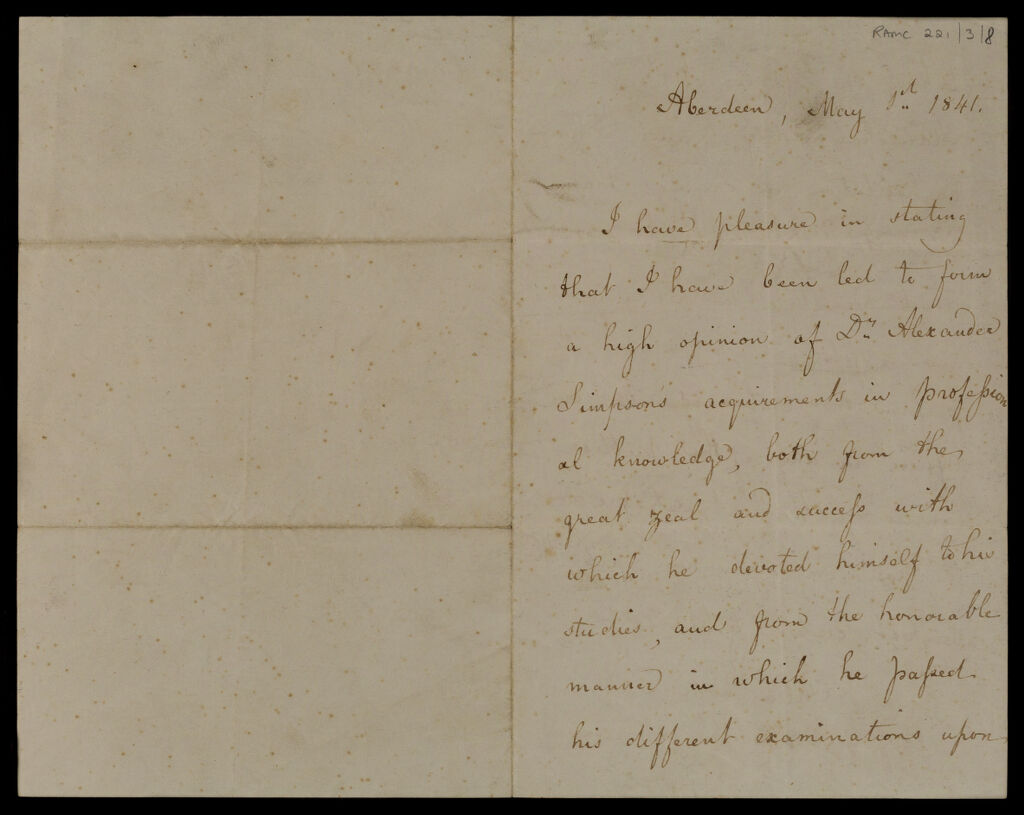 RAMC 221/3/8
Aberdeen, May 1st 1841.
I have pleasure in stating
that I have been led to form
a high opinion of Dr. Alexander
Simpson's acquirements in profession
al knowledge, both from the
great zeal and success with
which he devoted himself to his
studies, and from the honorable
manner in which he passed
his different examinations upon